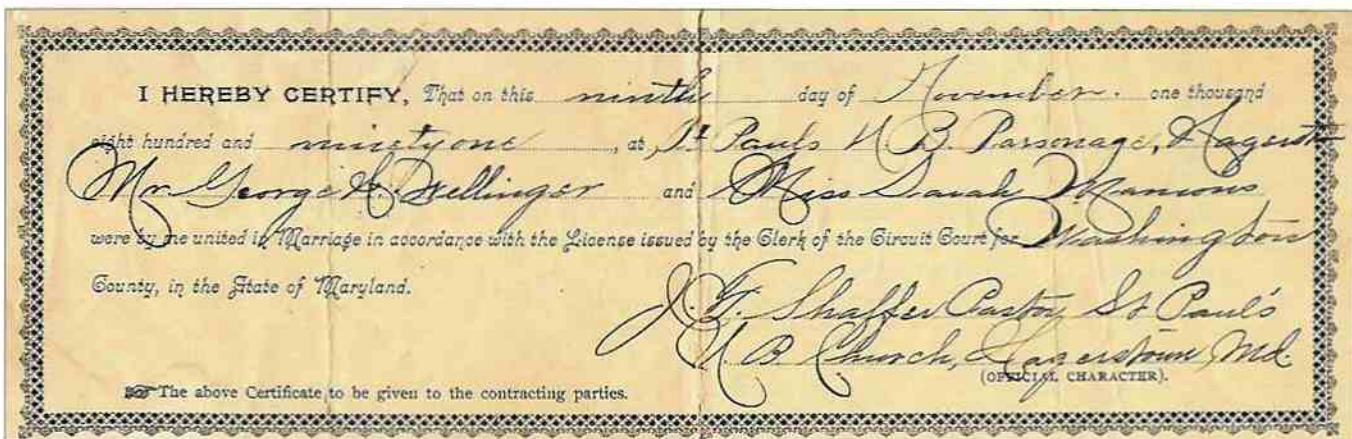 I HEREBY CERTIFY, That on this ninth day of November. one thousand
eight hundred and ninety one, at St Pauls U. B. Parsonage, Hagerst
Mr. George Wellinger and Miss Sarah
were by me united in Marriage in accordance with the License issued by the Clerk of the Circuit Court for Washington
County, in the State of Maryland.
J. F. Shaffer Pastor St Paul's
U B Church, Hagerstown, Md.
(OFFICIAL CHARACTER).
The above Certificate to be given to the contracting parties.